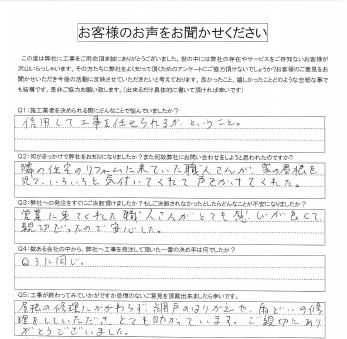 お客様のお声をお聞かせください
この度は弊社に工事をご用命頂き誠にありがとうございました。世の中には弊社の存在やサービスをご存知ないお客様が
沢山いらっしゃいます。その方たちに弊社をよく知って頂くためのアンケートにご協力頂けないでしょうか？お客様のご意見をお
聞かせいただき今後の活動に反映させていただきたいと考えております。良かったこと、嬉しかったことどのような些細な事で
も結構です。是非ご協力お願い致します。（出来るだけ具体的に書いて頂ければ幸いです）
Q1:施工業者を決められる際にどんなことで悩んでいましたか？
信用して工事を任せられるか、ということ。
Q2:何がきっかけで弊社をお知りになりましたか？また何故弊社にお問い合わせをしようと思われたのですか？
隣の住宅のリフォームに来ていた職人さんが、家の屋根を
見て、いろいろと気付いてくれて声をかけてくれた。
Q3:弊社への発注をすぐにご決断頂けましたか？もしご決断されなかったとしたらどんなことが不安になりましたか？
営業に来てくれた職人さんがとても感じが良くて、
親切だったので安心した。
Q4:数ある会社の中から、弊社へ工事を発注して頂いた一番の決め手は何でしたか？
Q3に同じ。
Q5:工事が終わってみていかがですか忌憚のないご意見を頂戴出来ましたら幸いです。
屋根の修理にかかわらず、網戸のはりかえや、雨どいの修
理をしていただき、とても助かっています。ご親切にあり
がとうございました。